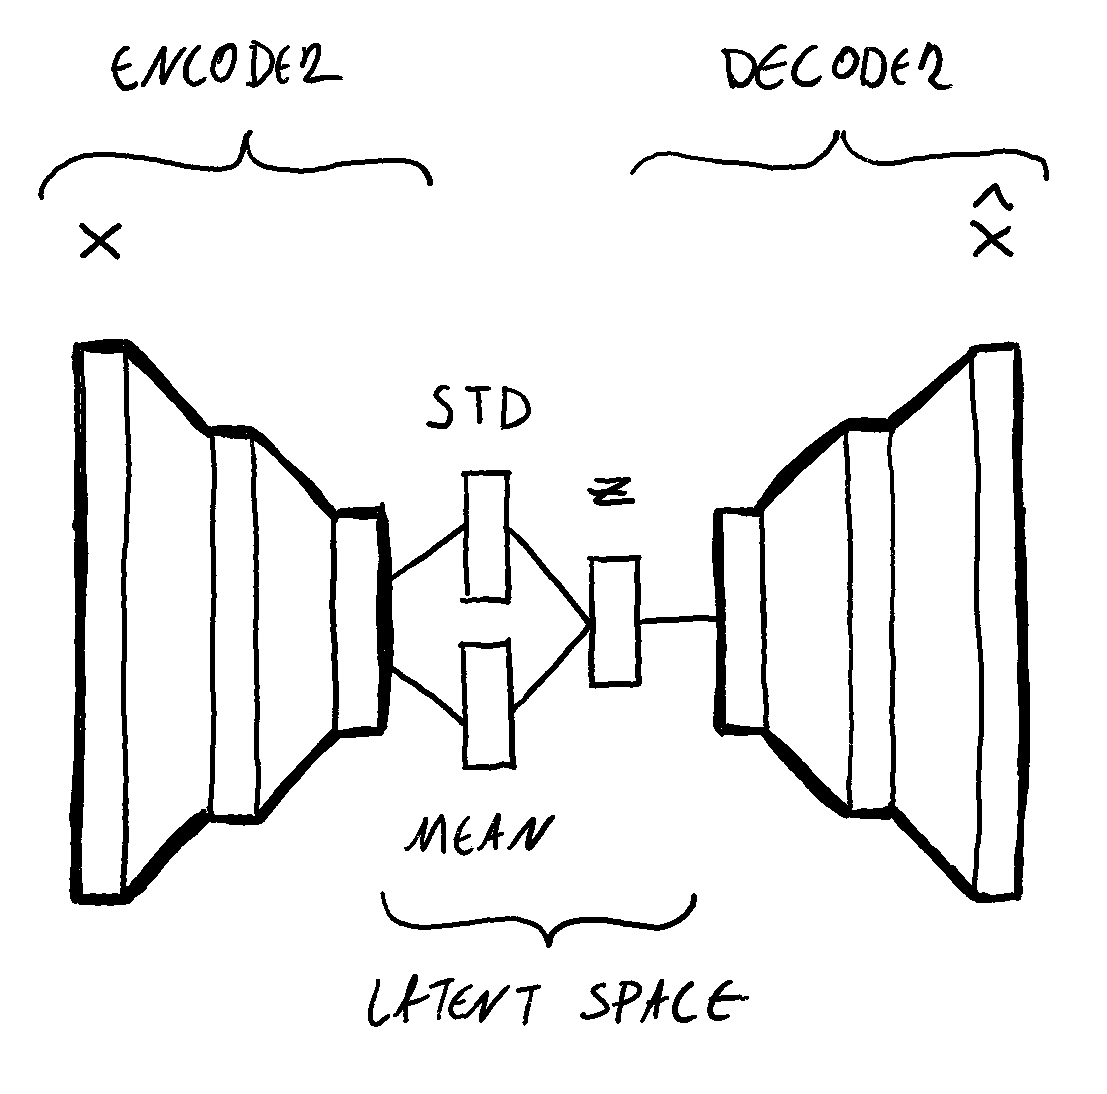 ENCODER
DECODER
x
x̂
STD
z
MEAN
LATENT SPACE